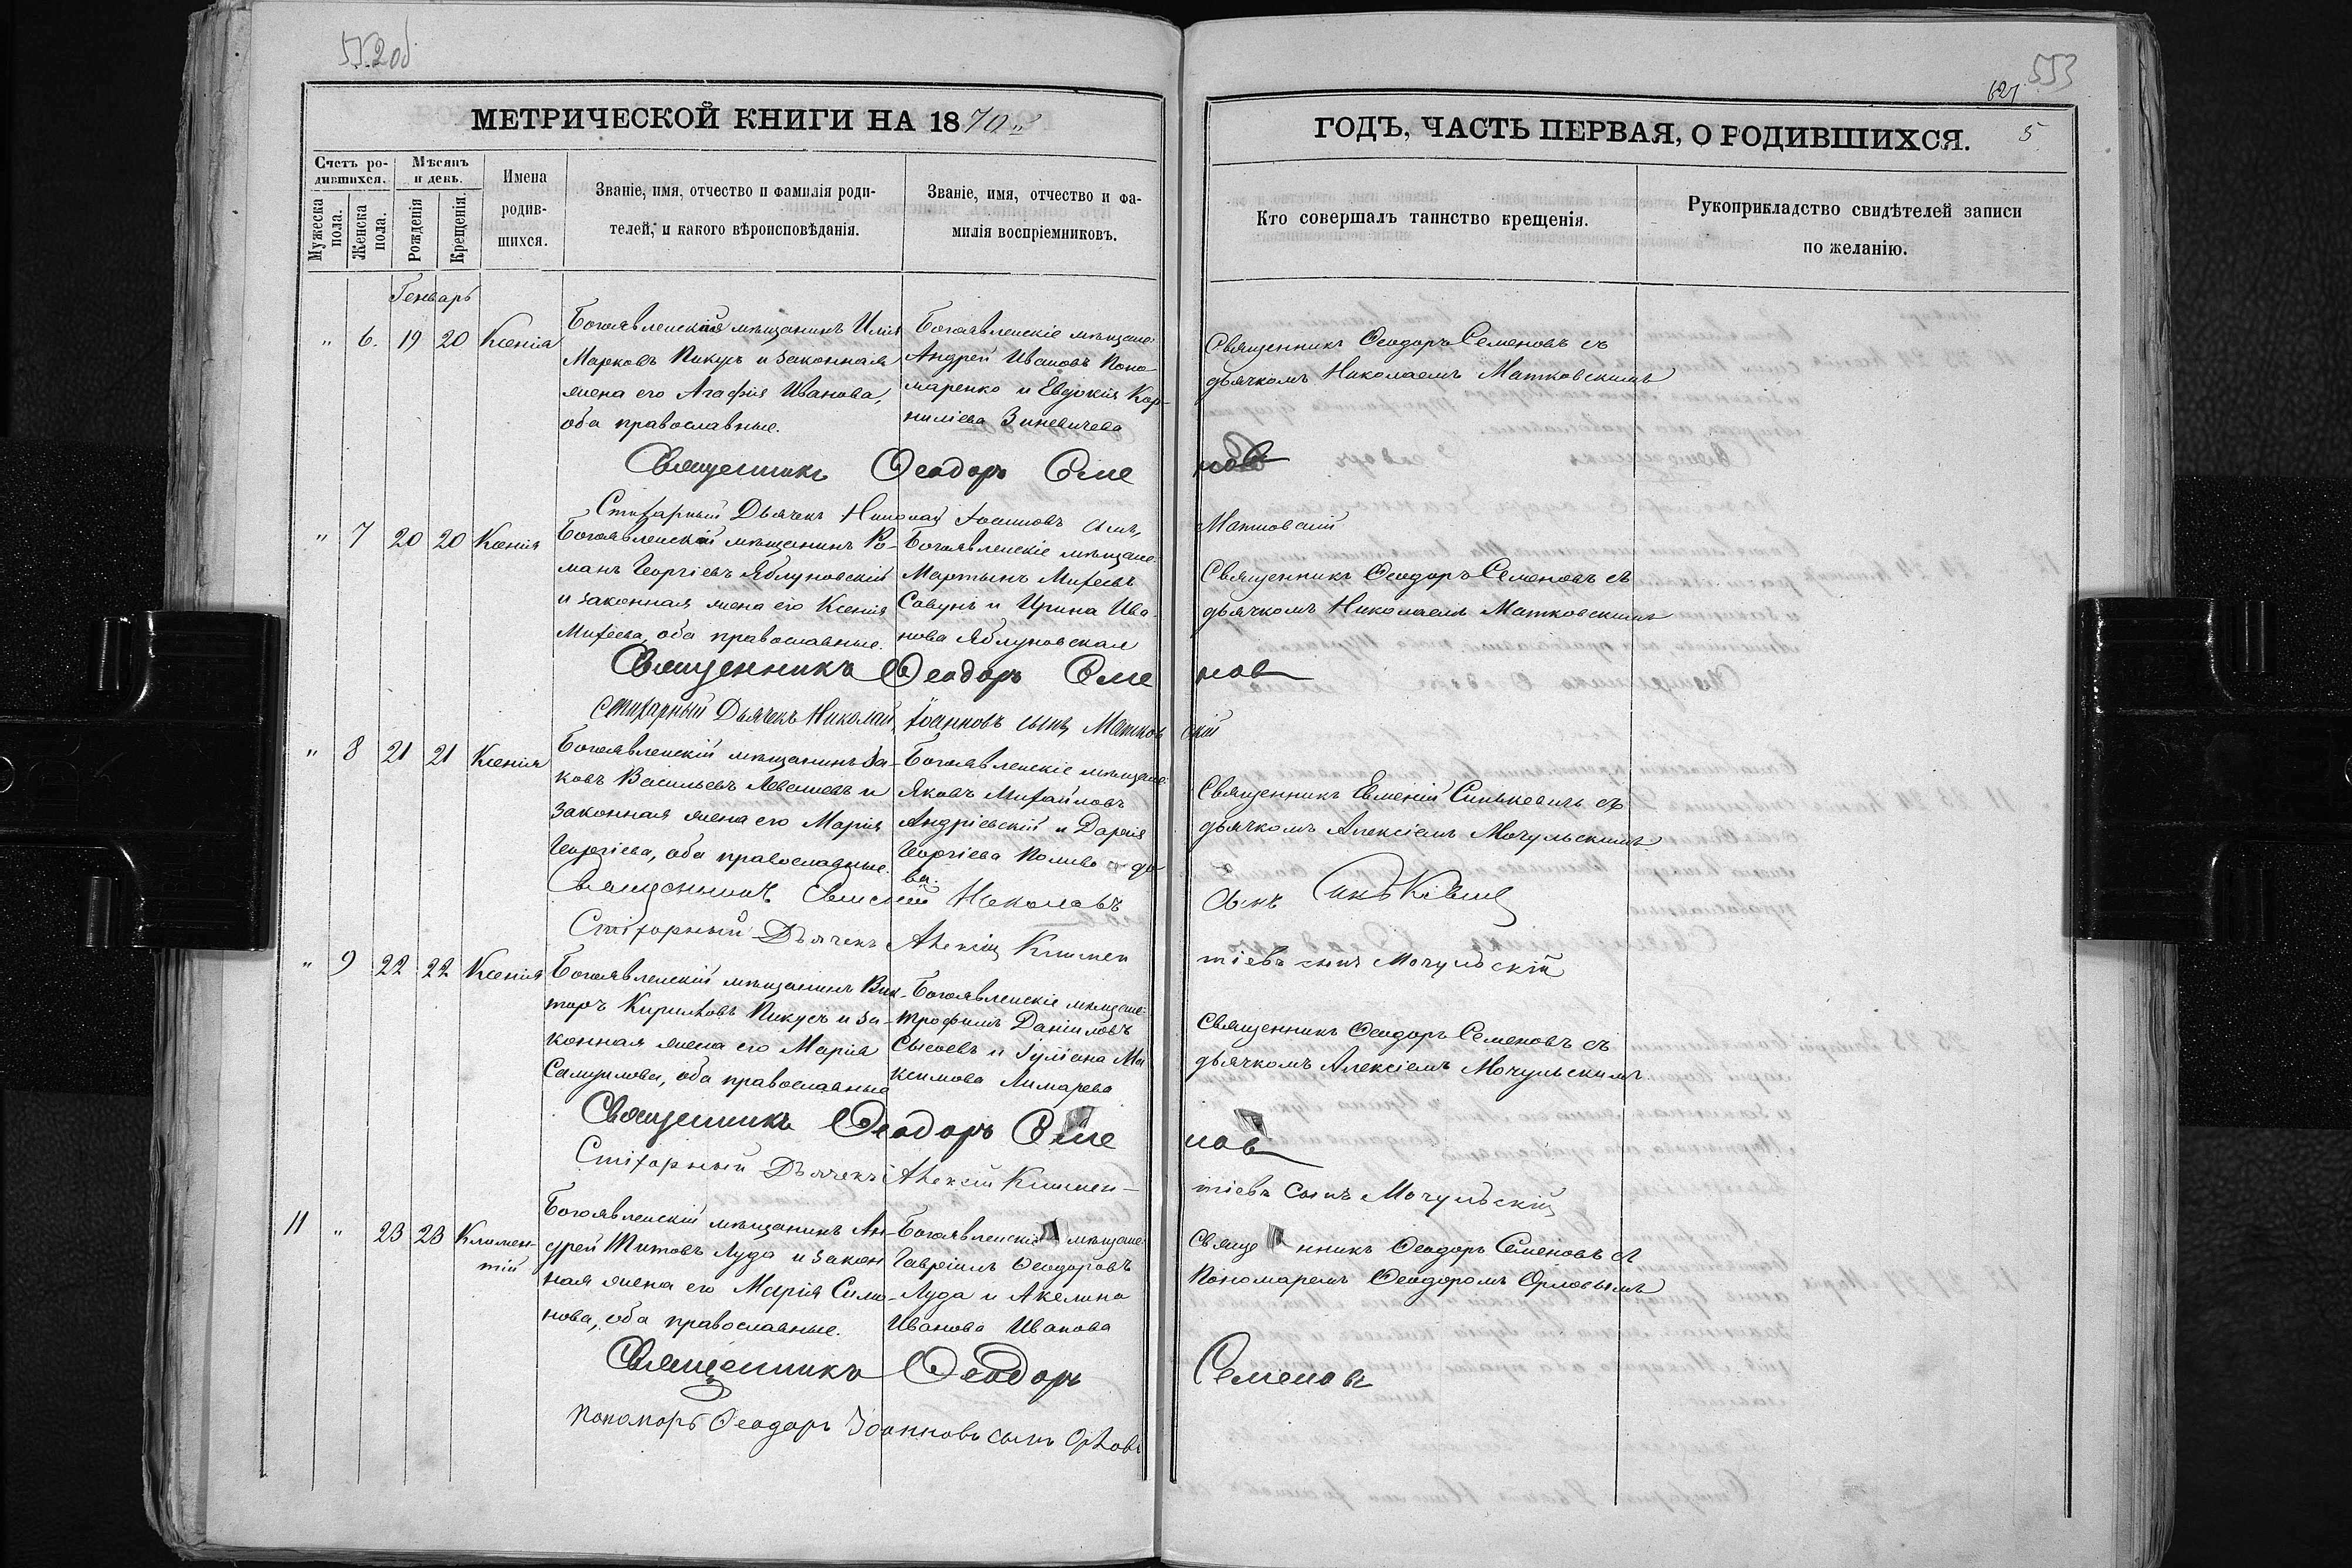 552об
553
621
5
МЕТРИЧЕСКОЙ КНИГИ НА 1870й
ГОДЪ, ЧАСТЬ ПЕРВАЯ, О РОДИВШИХСЯ.
Счетъ ро-
дившихся.
Мужеска пола.
Женска пола.
Мѣсяцъ
и день.
Рожденія
Крещенія.
Имена
родив-
шихся.
Званіе, имя, отчество и фамилія роди-
телей, и какого вѣроисповѣданія.
Званіе, имя, отчество и фа-
милія воспріемниковъ.
Кто совершалъ таинство крещенія.
Рукоприкладство свидѣтелей записи
по желанію.
Генварь
" 6. 19 20 Ксенія
Богоявленскій мѣщанинъ Илія
Марковъ Пикусъ и законная
жена его Агафія Иванова,
оба православные.
Богоявленскіе мѣщане:
Андрей Ивановъ Поно-
маренко и Евдокія Кор-
ниліева Зиневичева
Священникъ Ѳеодоръ Семеновъ съ
дьячкомъ Николаемъ Матковскимъ
Священникъ Ѳеодоръ Семе
нов
Стихарный Дьячекъ Николай Іоанновъ сынъ,
Матковский
" 7 20 20 Ксенія
Богоявленскій мѣщанинъ Ро-
манъ Георгіевъ Яблуновскій
и законная жена его Ксенія
Михеева, оба православные.
Богоявленскіе мѣщане
Мартынъ Михеевъ
Савунъ и Ирина Ива-
нова Яблуновская
Священникъ Ѳеодоръ Семеновъ съ
дьячкомъ Николаемъ Матковскимъ
Священникъ Ѳеодоръ Семе
нов
Стихарный Дьячекъ Николай Іоанновъ сынъ Матков
скій
" 8 21 21 Ксенія
Богоявленскій мѣщанинъ Іа-
ковъ Васильевъ и
законная жена его Марія
Георгіева, оба православные.
Богоявленскіе мѣщане:
Яковъ Михайловъ
Андріевскій и Дарія
Георгіева
ва.
Священникъ Евменій Синькевичъ съ
дьячкомъ Алексіемъ Мочульскимъ
Священникъ Евменій Николаевъ
сынъ Синькевич
Стіхорный Дьячекъ Алексій Климен
тіевъ сынъ Мочульскій
" 9 22 22 Ксенія
Богоявленскій мѣщанинъ Вик-
торъ Кириловъ Пикусъ и за-
конная жена его Марія
Самуилова, оба православные
Богоявленскіе мѣщане:
Трофимъ Даніиловъ
Сысоевъ и Іуліана Ма
ксимова Лимарева
Священникъ Ѳеодоръ Семеновъ съ
дьячкомъ Алексіемъ Мочульскимъ.
Священникъ Ѳеодоръ Семе
нов
Стіхорный Дьячекъ Алексій Климен-
тіевъ сынъ Мочульскій
11 " 23 23 Климен-
тій
Богоявленскій мѣщанинъ Ан-
дрей Титовъ Луда и закон
ная жена его Марія Симо-
нова, оба православные.
Богоявленскіе мѣщане:
Гавріилъ Ѳеодоровъ
Луда и Акелина
Иванова Иванова
Священникъ Ѳеодоръ Семеновъ съ
Пономаремъ Ѳеодоромъ Орловымъ
Священникъ Ѳеодоръ
Семенов
Пономорь Ѳеодоръ Іоанновъ сынъ Орловъ